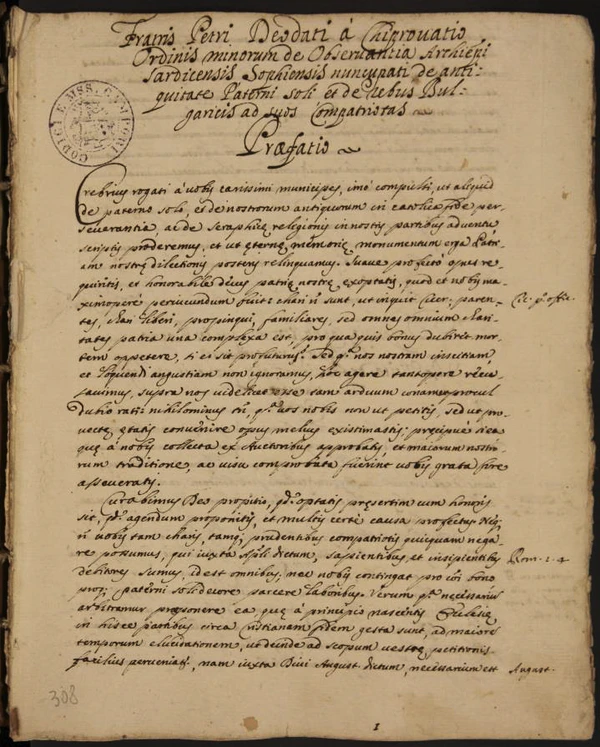 Fratris Petri Deodati á Chiprovatio
Ordinis minorum de Observantia Archiepi
Sardicensis Sophiensis nuncupati de anti=
quitate Paterni soli et de rebus Bul=
garicis ad suos Compatriotas
Præfatio
CODICI E MSS. CAMPORI
Crebrius rogati á vobis carissimi municipes, imó compulsi, ut aliquid
de paterno solo, et de nostrorum antiquorum in catolica fide per-
severantia, ac de Seraphicę religionis in nostris partibus adventu
scriptis proderemus, et ut ęternę memorię monumentum erga Patri-
am nostrę dilectionis posteris relinquamus. Suave profectó opus re-
quiritis, et honorabile decus patrię nostrę exoptatis, quod et nobis ma-
ximopere periucundum fuit: chari sunt, ut inquit Cicer: paren-
tes, chari liberi, propinqui, familiares, sed omnes omnium chari-
tates patria una complexa est, pro qua quis bonus dubitet mor-
tem oppetere, si ei sit profuturus? Sed nos nostram inscitiam,
et loquendi angustiam non ignoramus, hoc agere tantopere recu-
savimus, supra nos videlicet esse tam arduum conamen procul
dubio rati: nihilominus vos nobis non ut petitis, sed ut pro-
vectę ętatis convenire opus melius existimastis: pręcipue
quę á nobis collecta ex Auctoribus approbatis, et maiorum nostro-
rum traditione, ac visu comprobata fuerint vobis grata fore
asseveratis.
Curabimus Deo propitio, optatis pręsertim cum honoris
sit, agendum proponitis, et multis certè causa profectus
vobis tam charis, prudentibus compatriotis quicquam nega-
re possumus, qui iuxta dictum, sapientibus et insipientibus
debitores sumus, id est omnibus, nec nobis contingat pro
paterni soli decore parcere laboribus. Verum necessarium
arbitramur pręponere ea quę á principio nascentis Ecclesię
in hisce partibus circa Cristianam fidem gesta sunt, ad maiorem
temporum elucidationem, ut deinde ad scopum vestrę petitionis
facilius perveniatis, nam iuxta Divi August. dictum, necessarium est
Cic. pº offic.
Rom. 1. 4
August.
308
1